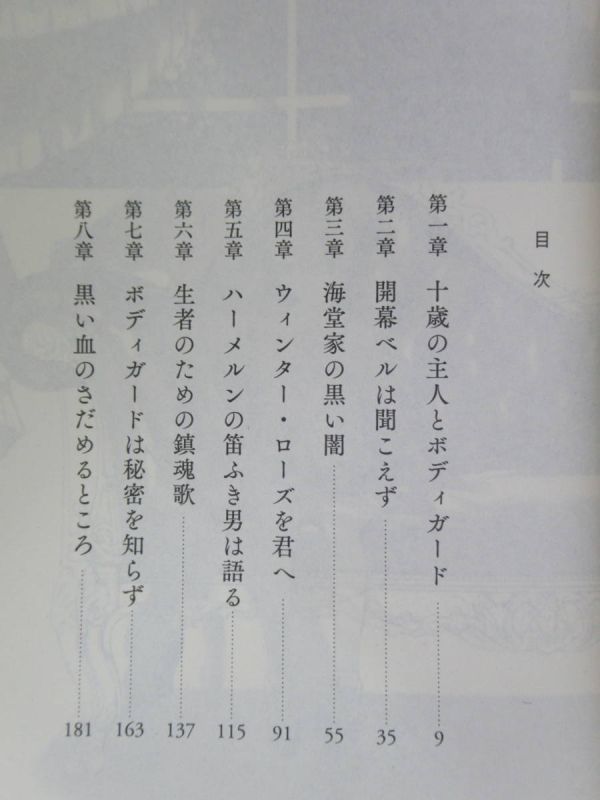 目次
第一章 十歳の主人とボディガード……9
第二章 開幕ベルは聞こえず……35
第三章 海堂家の黒い闇……55
第四章 ウィンター・ローズを君へ……91
第五章 ハーメルンの笛ふき男は語る……115
第六章 生者のための鎮魂歌……137
第七章 ボディガードは秘密を知らず……163
第八章 黒い血のさだめるところ……181